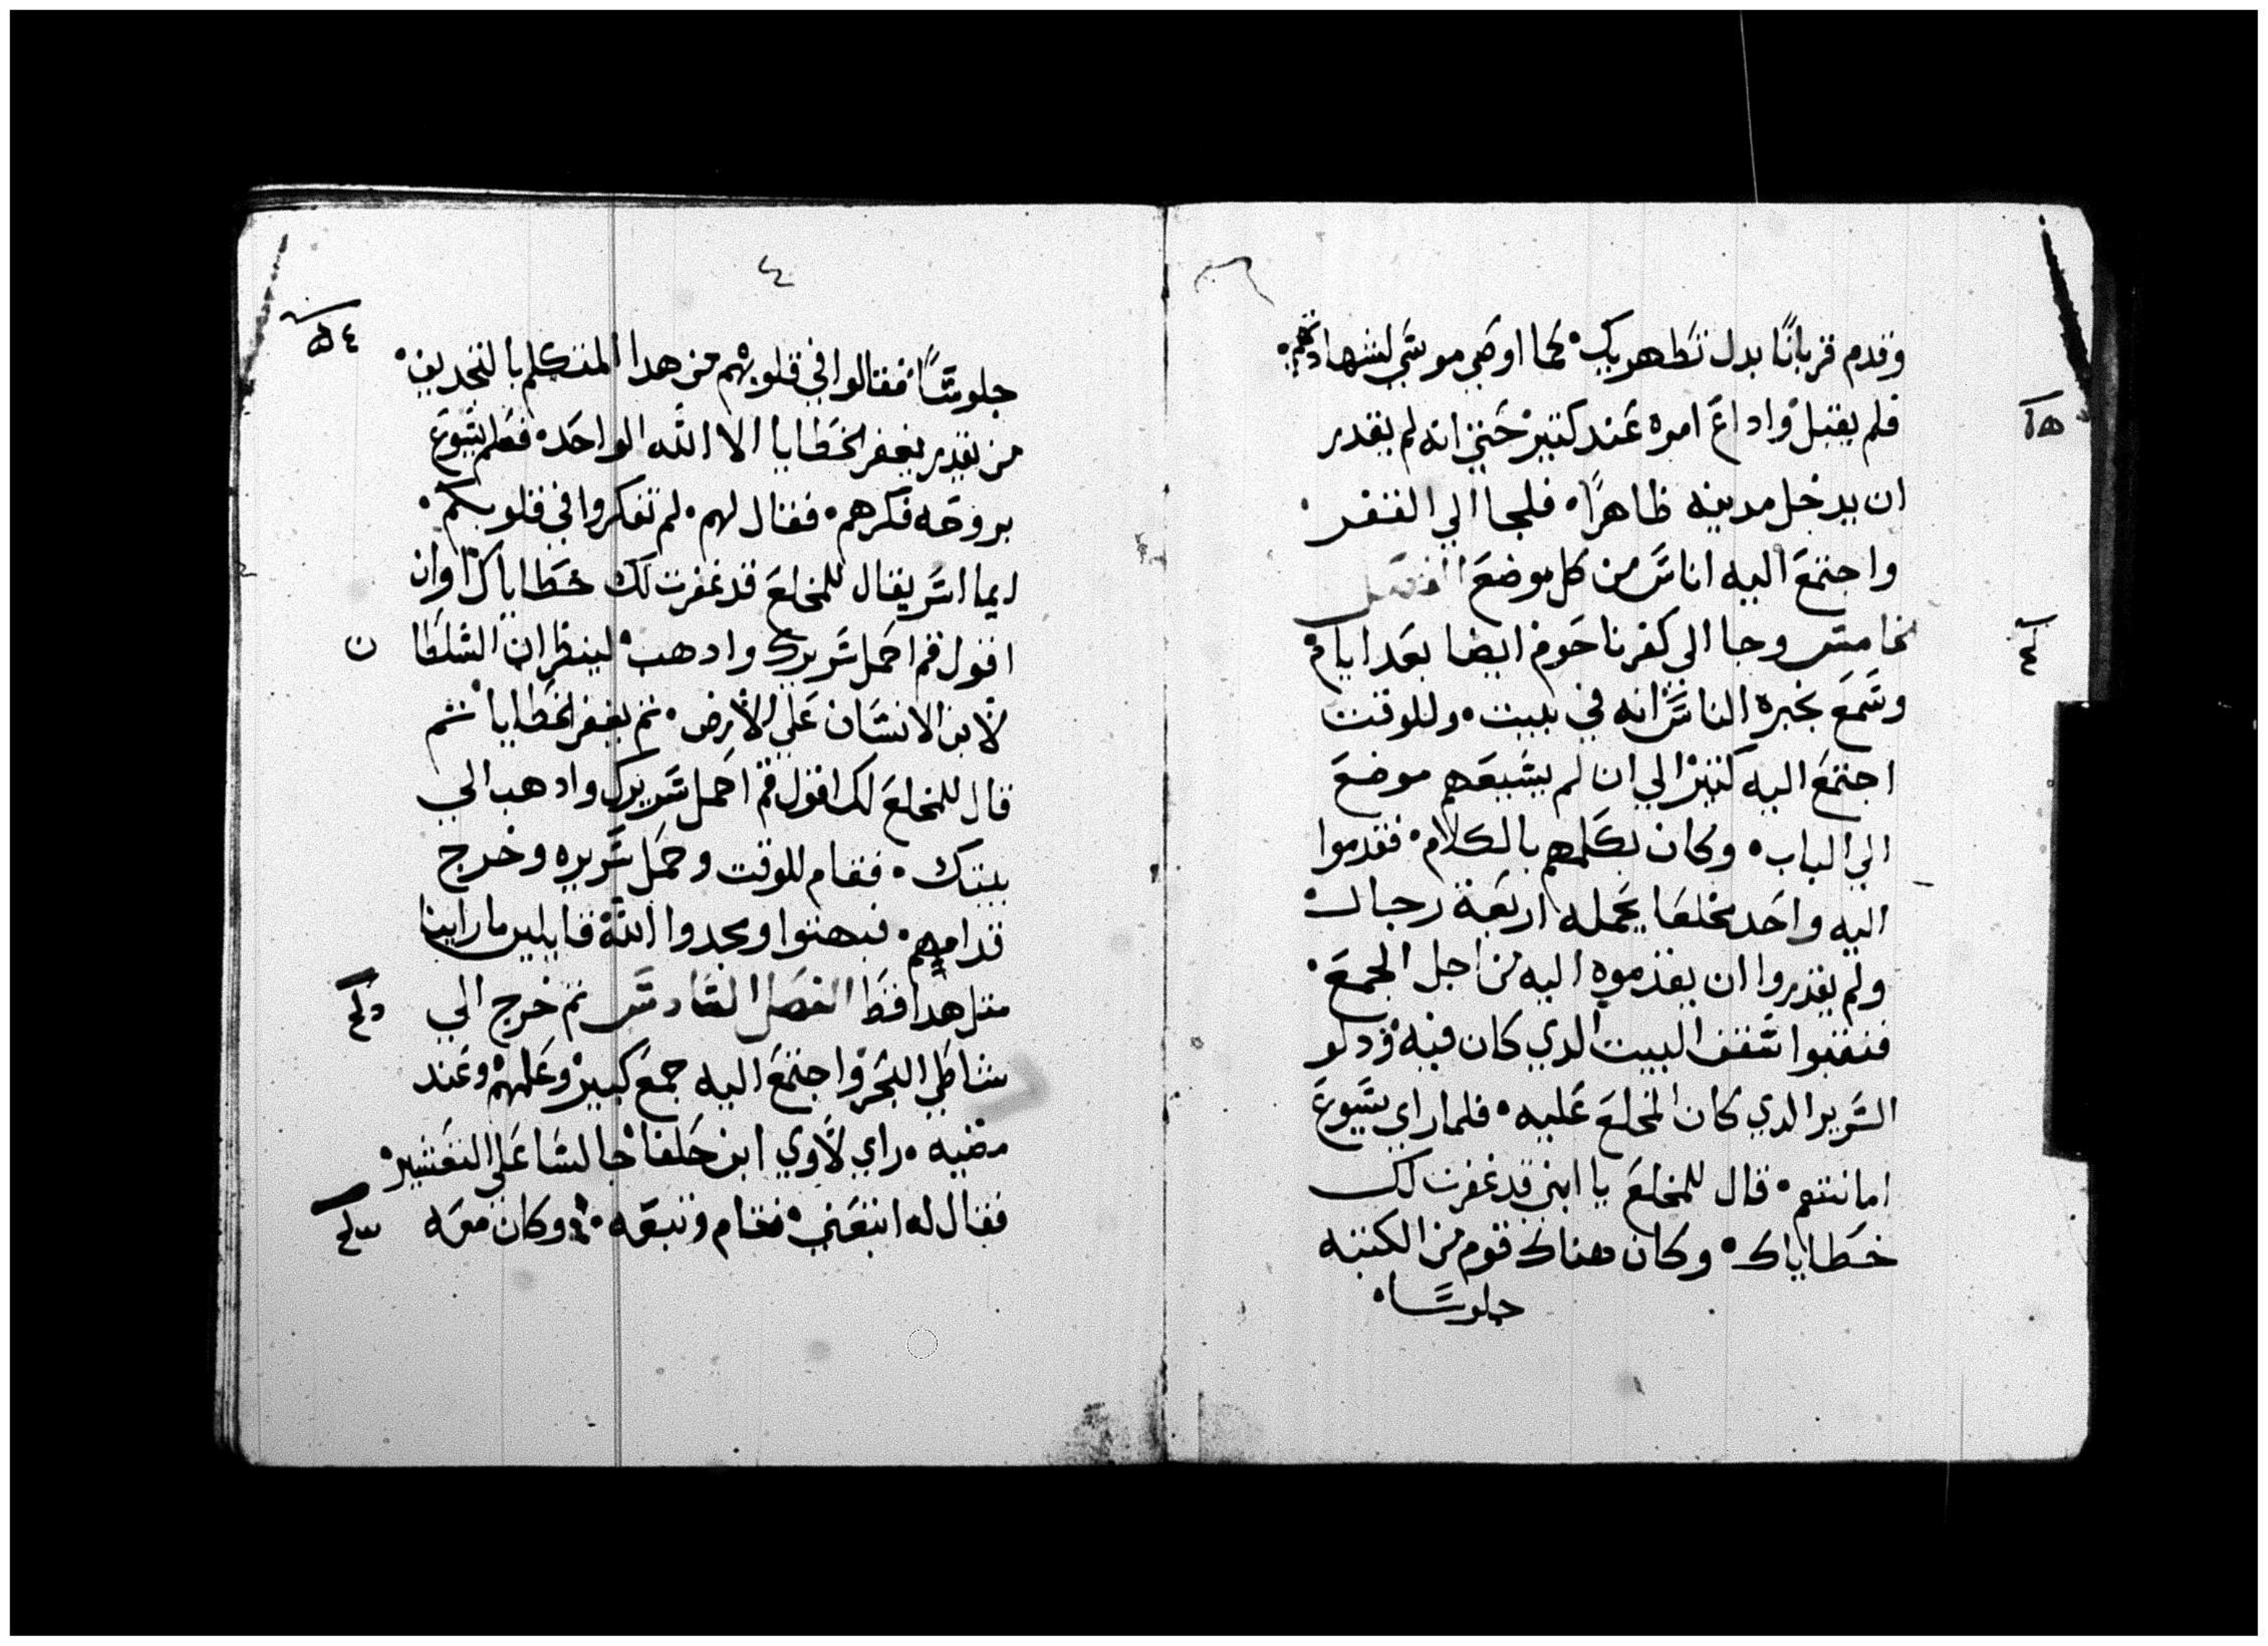 وقدم قربانًا بدل تطهيرك كما اوصي موسي لشهادتهم
فلم يقبل واداع امره عند كتير حتي انه لم يقدر
ان يدخل مدينه ظاهرًا فلجا الي القفر
واجتمع اليه اناس من كل موضع الفصل
الخامس وجا الي كفرناحوم ايضا بعد ايام
وسمع بخبره الناس انه في بيت وللوقت
اجتمع اليه كتير الي ان لم يسيعهم موضع
الي الباب وكان يكلمهم بالكلام فقدموا
اليه واحد مخلعا يحمله اربعة رجال
ولم يقدروا ان يقدموه اليه من اجل الجمع
فنقبوا سقف البيت الدي كان فيه ودلو
السرير الدي كان المخلع عليه فلما راي يسوع
امانتهم قال للمخلع يا ابني قد غفرت لك
خطاياك وكان هناك قوم من الكتبه
جلوسًا
٤
جلوسًا فقالوا في قلوبهم من هدا المتكلم بالتجديف
من يقدر يغفر الخطايا الا الله الواحد فعلم يسوع
بروحه فكرهم فقال لهم لم تفكروا في قلوبكم
ايما اسر يقال للمخلع قد غفرت لك خطاياك او ان
اقول قم احمل سريرك وادهب لينظر ان السلطا ن
لابن الانسان علي الارض تم يغفر الخطايا تم
قال للمخلع لك اقول قم احمل سريرك وادهب الي
بيتك فقام للوقت وحمل سريره وخرج
قدامهم فبهتوا ومجدوا الله قايلين ما راينا
متل هدا قط الفصل السادس تم خرج الي
شاطي البحر واجتمع اليه جمع كبير وعلمهم وعند
مضيه راي لاوي ابن حلفا جالسا علي التعشير
فقال له اتبعني فقام وتبعه وكان معه